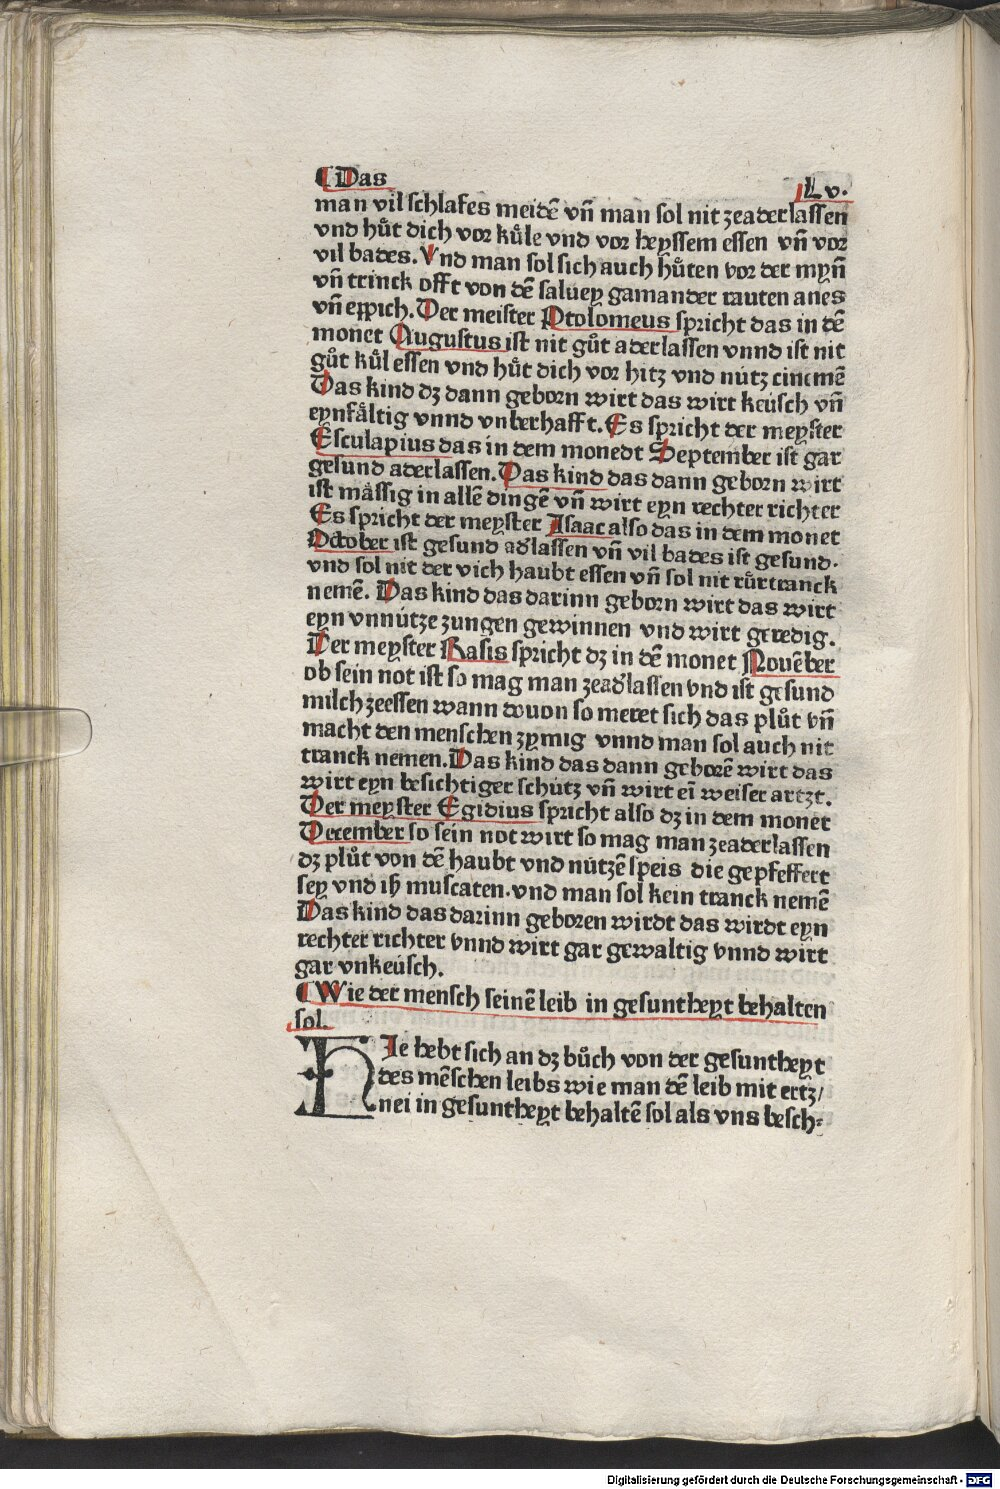 ¶ Das Lv.
man vil schlafes meidē vn̄ man sol nit zeaderlassen
vnd hüt dich vor küle vnd vor heyssem essen vn̄ vor
vil bades. Vnd man sol sich auch hüten vor der myn̄
vn̄ trinck offt von dē saluey gamander rauten anes
vn̄ eppich. Der meister Ptolomeus spricht das in dē
monet Augustus ist nit gůt aderlassen vnnd ist nit
gůt kül essen vnd hüt dich vor hitz vnd nütz cinemē
Das kind dz dann geborn wirt das wirt keüsch vn̄
eynfåltig vnnd vnberhafft. Es spricht der meyster
Esculapius das in dem monedt September ist gar
gesund aderlassen. Das kind das dann geborn wirt
ist mässig in allē dingē vn̄ wirt eyn rechter richter
Es spricht der meyster Isaac also das in dem monet
October ist gesund adʼlassen vn̄ vil bades ist gesund.
vnd sol nit der vich haubt essen vn̄ sol nit rürtranck
nemē. Das kind das darinn geborn wirt das wirt
eyn vnnütze zungen gewinnen vnd wirt geredig.
Der meyster Rasis spricht dz in dē monet Nouēber
ob sein not ist so mag man zeadʼlassen vnd ist gesund
milch zeessen wann douon so meret sich das plůt vn̄
macht den menschen zymig vnnd man sol auch nit
tranck nemen. Das kind das dann geborē wirt das
wirt eyn besichtiger schütz vn̄ wirt eī weiser artzt.
Der meyster Egidius spricht also dz in dem monet
December so sein not wirt so mag man zeaderlassen
dz plůt von dē haubt vnd nützē speis die gepfeffert
sey vnd iß muscaten. vnd man sol kein tranck nemē
Das kind das darinn geboren wirdt das wirdt eyn
rechter richter vnnd wirt gar gewaltig vnnd wirt
gar vnkeüsch.
¶ Wie der mensch seinē leib in gesuntheyt behalten
sol.
HIe hebt sich an dz bůch von der gesuntheyt
des mēschen leibs wie man dē leib mit ertz/
nei in gesuntheyt behaltē sol als vns besch⸗
Digitalisierung gefördert durch die Deutsche Forschungsgemeinschaft - DFG